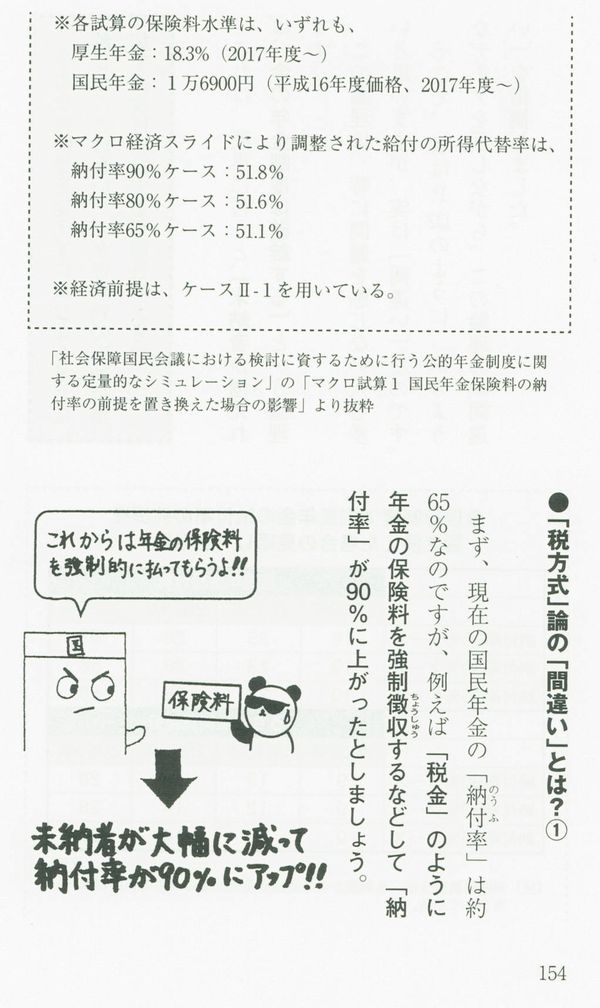 ※各試算の保険料水準は、いずれも、
厚生年金：18.3%（2017年度～）
国民年金：１万6900円（平成16年度価格、2017年度～）
※マクロ経済スライドにより調整された給付の所得代替率は、
納付率90%ケース：51.8%
納付率80%ケース：51.6%
納付率65%ケース：51.1%
※経済前提は、ケースⅡ-１を用いている。
「社会保障国民会議における検討に資するために行う公的年金制度に関
する定量的なシミュレーション」の「マクロ試算１ 国民年金保険料の納
付率の前提を置き換えた場合の影響」より抜粋
●「税方式」論の「間違い」とは？①
まず、現在の国民年金の「納付率」は約
のうふ
65%なのですが、例えば「税金」のように
年金の保険料を強制徴収するなどして「納
ちょうしゅう
付率」が90%に上がったとしましょう。
これからは年金の保険料
を強制的に払ってもらうよ!!
国
保険料
未納者が大幅に減って
納付率が90%にアップ!!
154